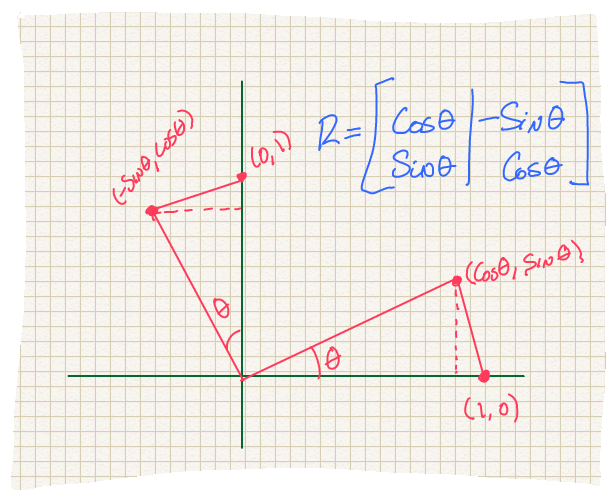 R = [ Cosθ | -Sinθ ]
[ Sinθ | Cosθ ]
(-Sinθ, Cosθ)
(0,1)
(Cosθ, Sinθ)
θ
θ
(1,0)